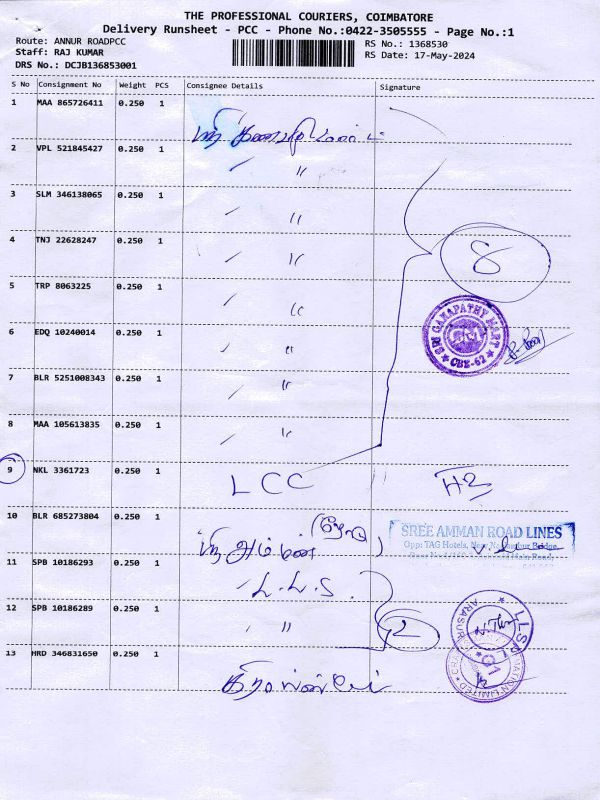 THE PROFESSIONAL COURIERS, COIMBATORE
Delivery Runsheet - PCC - Phone No.:0422-3505555 - Page No.:1
Route: ANNUR ROADPCC
Staff: RAJ KUMAR
DRS No.: DCJB136853001
RS No.: 1368530
RS Date: 17-May-2024
S No Consignment No Weight PCS Consignee Details Signature
1 MAA 865726411 0.250 1
2 VPL 521845427 0.250 1 〃
3 SLM 346138065 0.250 1 〃
4 TNJ 22628247 0.250 1 〃
8
5 TRP 8063225 0.250 1 〃
SRI GANAPATHY MART
CBE-62
6 EDQ 10240014 0.250 1 〃
7 BLR 5251008343 0.250 1 〃
8 MAA 105613835 0.250 1 〃
9 NKL 3361723 0.250 1 LCC
10 BLR 685273804 0.250 1
SREE AMMAN ROAD LINES
Opp: TAG Hotels,
11 SPB 10186293 0.250 1 L.L.S.
12 SPB 10186289 0.250 1 〃 2
13 HRD 346831650 0.250 1